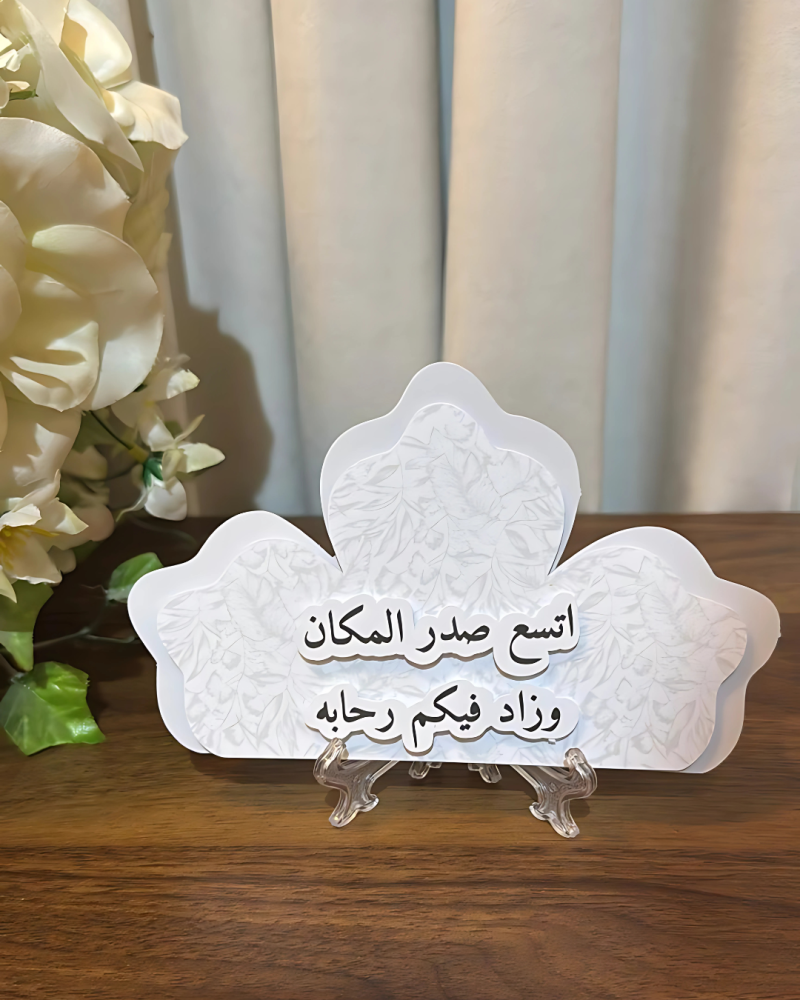 اتسع صدر المكان
وزاد فيكم رحابه